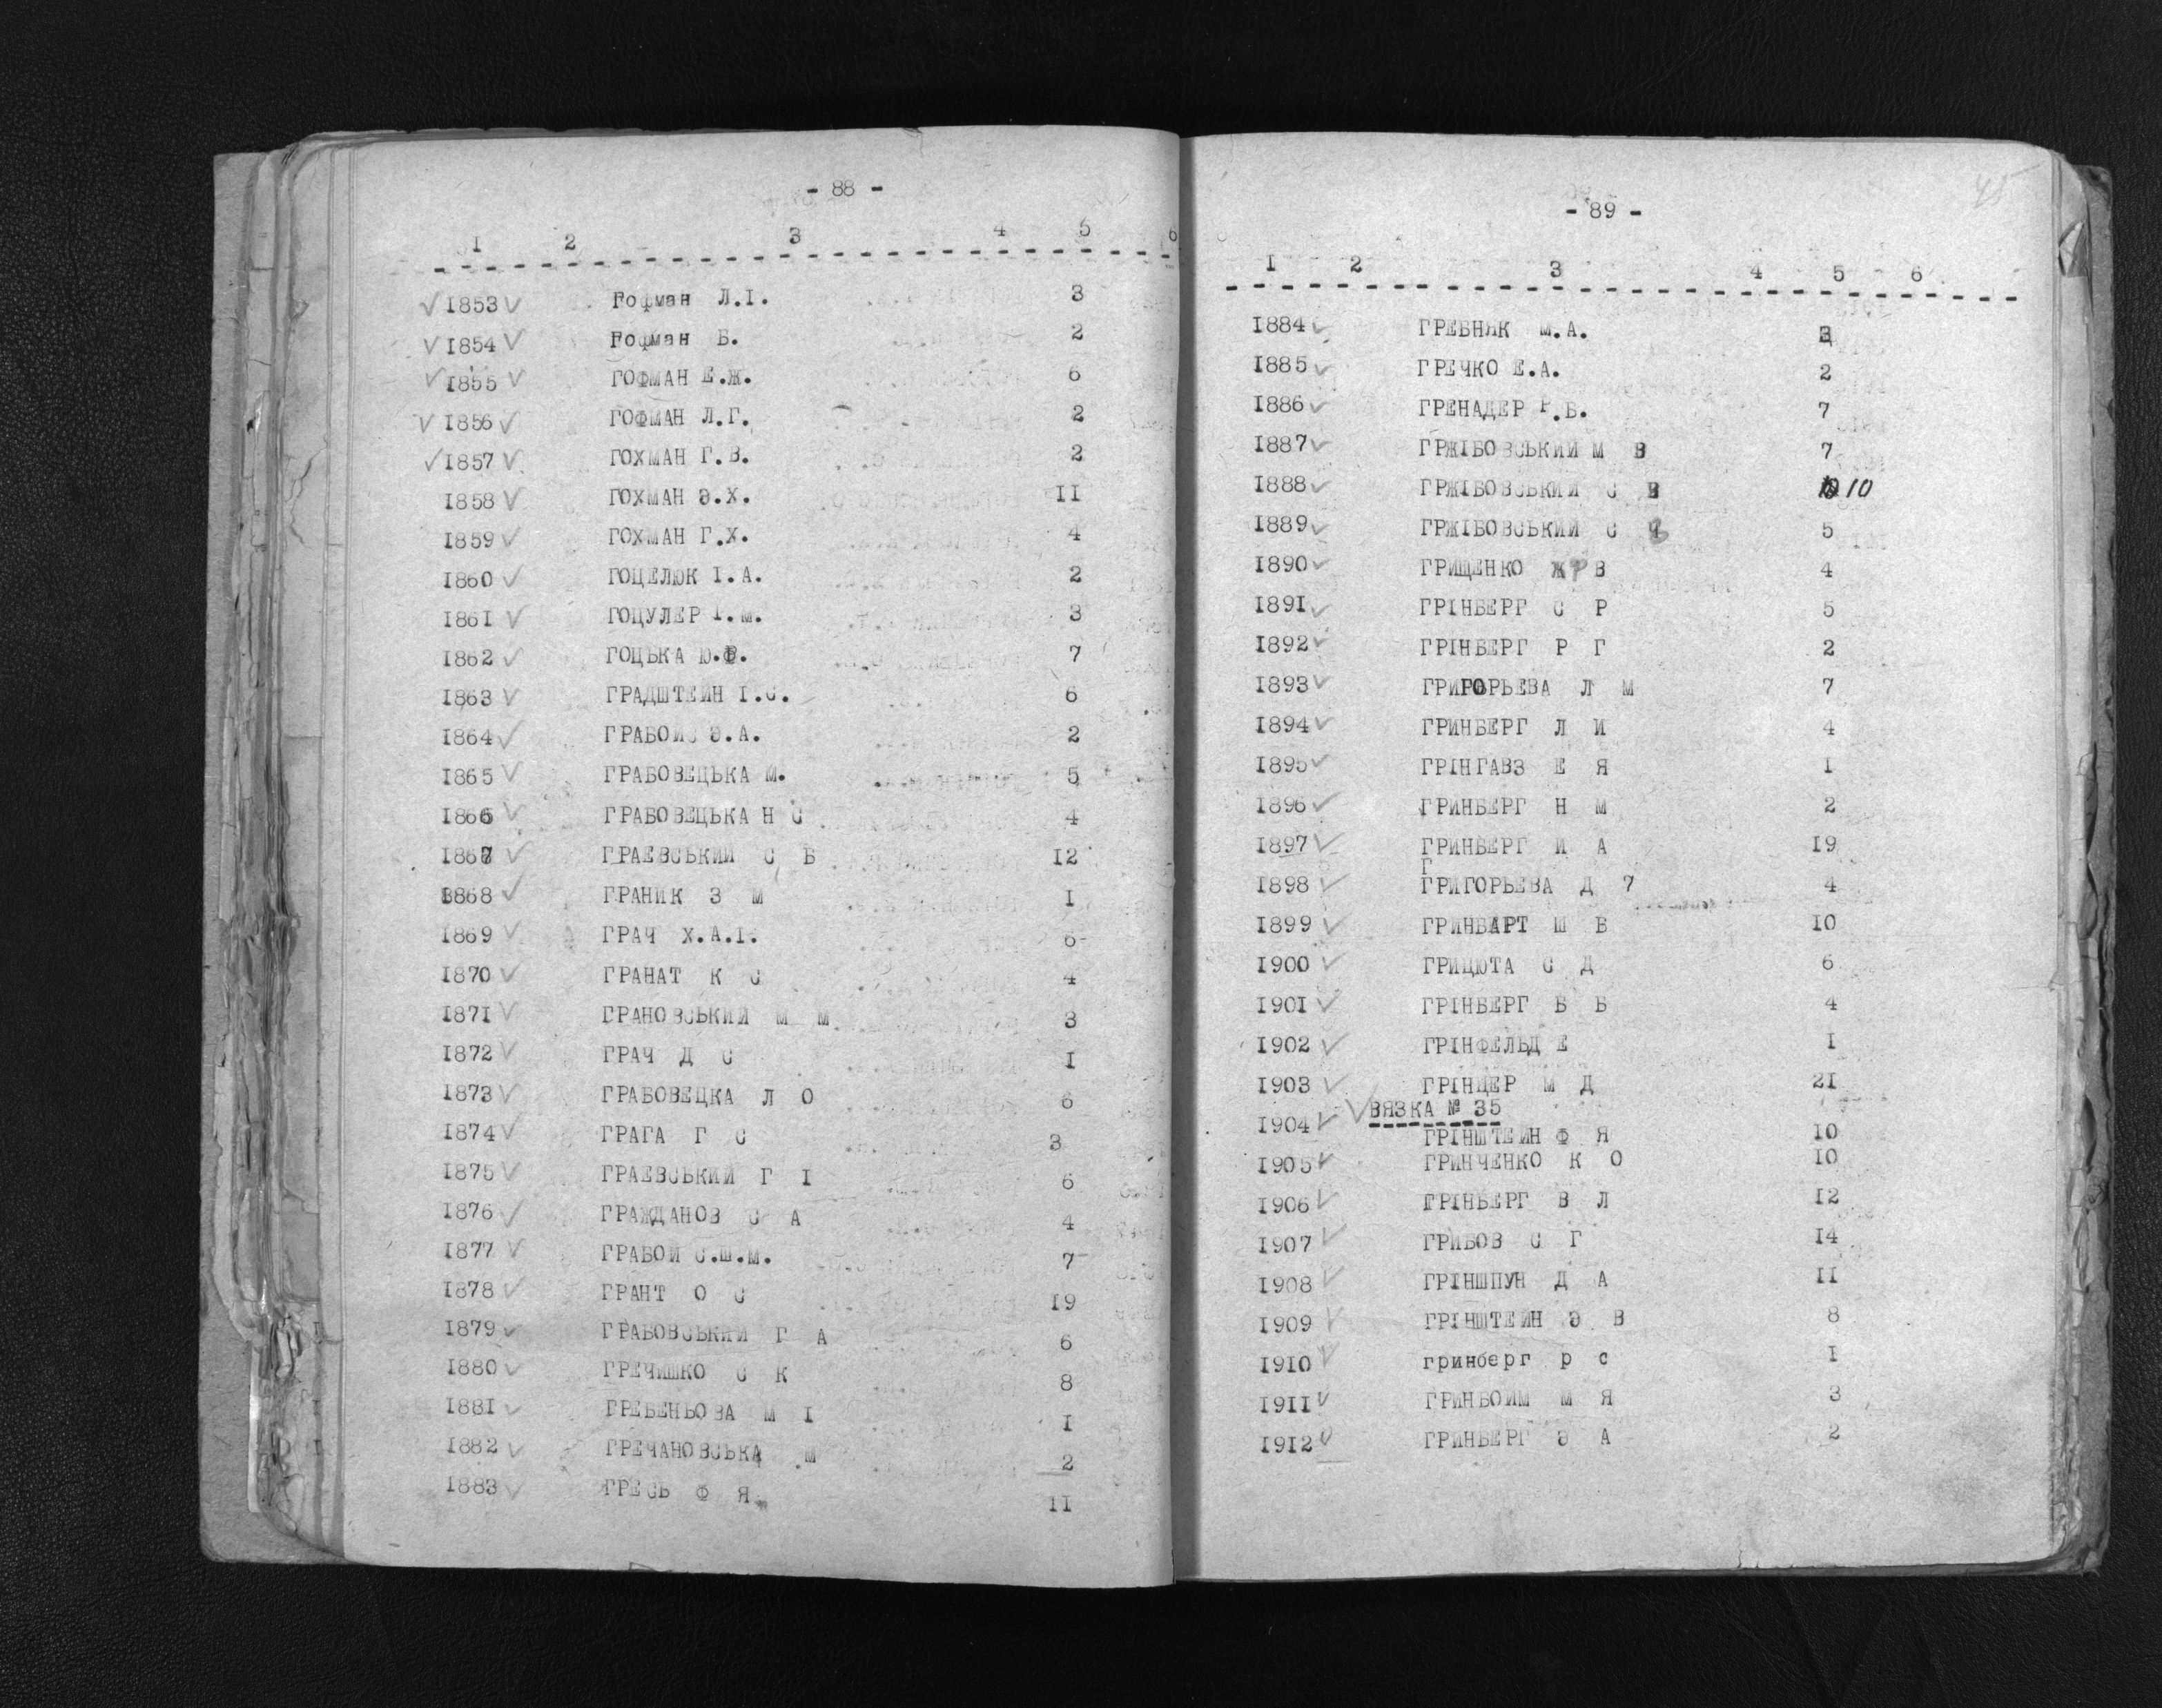 - 88 -
I 2 3 4 5 6
1853 Гофман Л.І. 3
1854 Гофман Б. 2
1855 ГОФМАН Е.Ж. 6
1856 ГОФМАН Л.Г. 2
1857 ГОХМАН Г.В. 2
1858 ГОХМАН Э.Х. II
1859 ГОХМАН Г.Х. 4
1860 ГОЦЕЛЮК І.А. 2
1861 ГОЦУЛЕР І.М. 3
1862 ГОЦЬКА Ю.Ф. 7
1863 ГРАДШТЕЙН І.С. 6
1864 ГРАБОИС Э.А. 2
1865 ГРАБОВЕЦЬКА М. 5
1866 ГРАБОВЕЦЬКА Н С 4
1867 ГРАЕВСЬКИЙ С Б 12
1868 ГРАНИК З М I
1869 ГРАЧ Х.А.І. 6
1870 ГРАНАТ К С 4
1871 ГРАНОВСЬКИЙ М М 3
1872 ГРАЧ Д С I
1873 ГРАБОВЕЦКА Л О 6
1874 ГРАГА Г С 3
1875 ГРАЕВСЬКИЙ Г І 6
1876 ГРАЖДАНОВ С А 4
1877 ГРАБОЙ С.Ш.М. 7
1878 ГРАНТ О С 19
1879 ГРАБОВСЬКИЙ Г А 6
1880 ГРЕЧИШКО С К 8
1881 ГРЕБЕНЬОВА М І I
1882 ГРЕЧАНОВСЬКА М 2
1883 ГРЕСЬ Ф Я II
45
- 89 -
I 2 3 4 5 6
1884 ГРЕБНЯК М.А.
1885 ГРЕЧКО Е.А. 2
1886 ГРЕНАДЕР Р.Б. 7
1887 ГРЖІБОВСЬКИЙ М В 7
1888 ГРЖІБОВСЬКИЙ С В 10
1889 ГРЖІБОВСЬКИЙ С 5
1890 ГРИЩЕНКО В 4
1891 ГРІНБЕРГ С Р 5
1892 ГРІНБЕРГ Р Г 2
1893 ГРИГОРЬЕВА Л М 7
1894 ГРИНБЕРГ Л И 4
1895 ГРІНГАВЗ Е Я I
1896 ГРИНБЕРГ Н М 2
1897 ГРИНБЕРГ И А 19
1898 ГРИГОРЬЕВА Д 7 4
1899 ГРИНБАРТ Ш Б 10
1900 ГРИЦЮТА С Д 6
1901 ГРІНБЕРГ Б Б 4
1902 ГРІНФЕЛЬД Е I
1903 ГРІНЦЕР М Д 21
ВЯЗКА № 35
1904 ГРІНШТЕЙН Ф Я 10
1905 ГРИНЧЕНКО К О 10
1906 ГРІНБЕРГ В Л 12
1907 ГРИБОВ С Г 14
1908 ГРІНШПУН Д А II
1909 ГРІНШТЕЙН Э В 8
1910 гринберг р с I
1911 ГРИНБОЙМ М Я 3
1912 ГРИНБЕРГ Э А 2